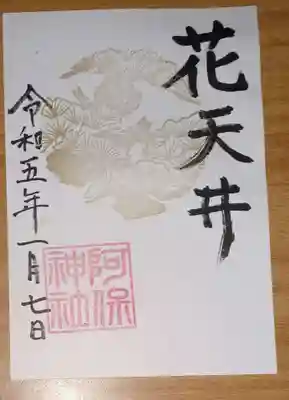 花天井
令和五年一月七日
阿保
神社